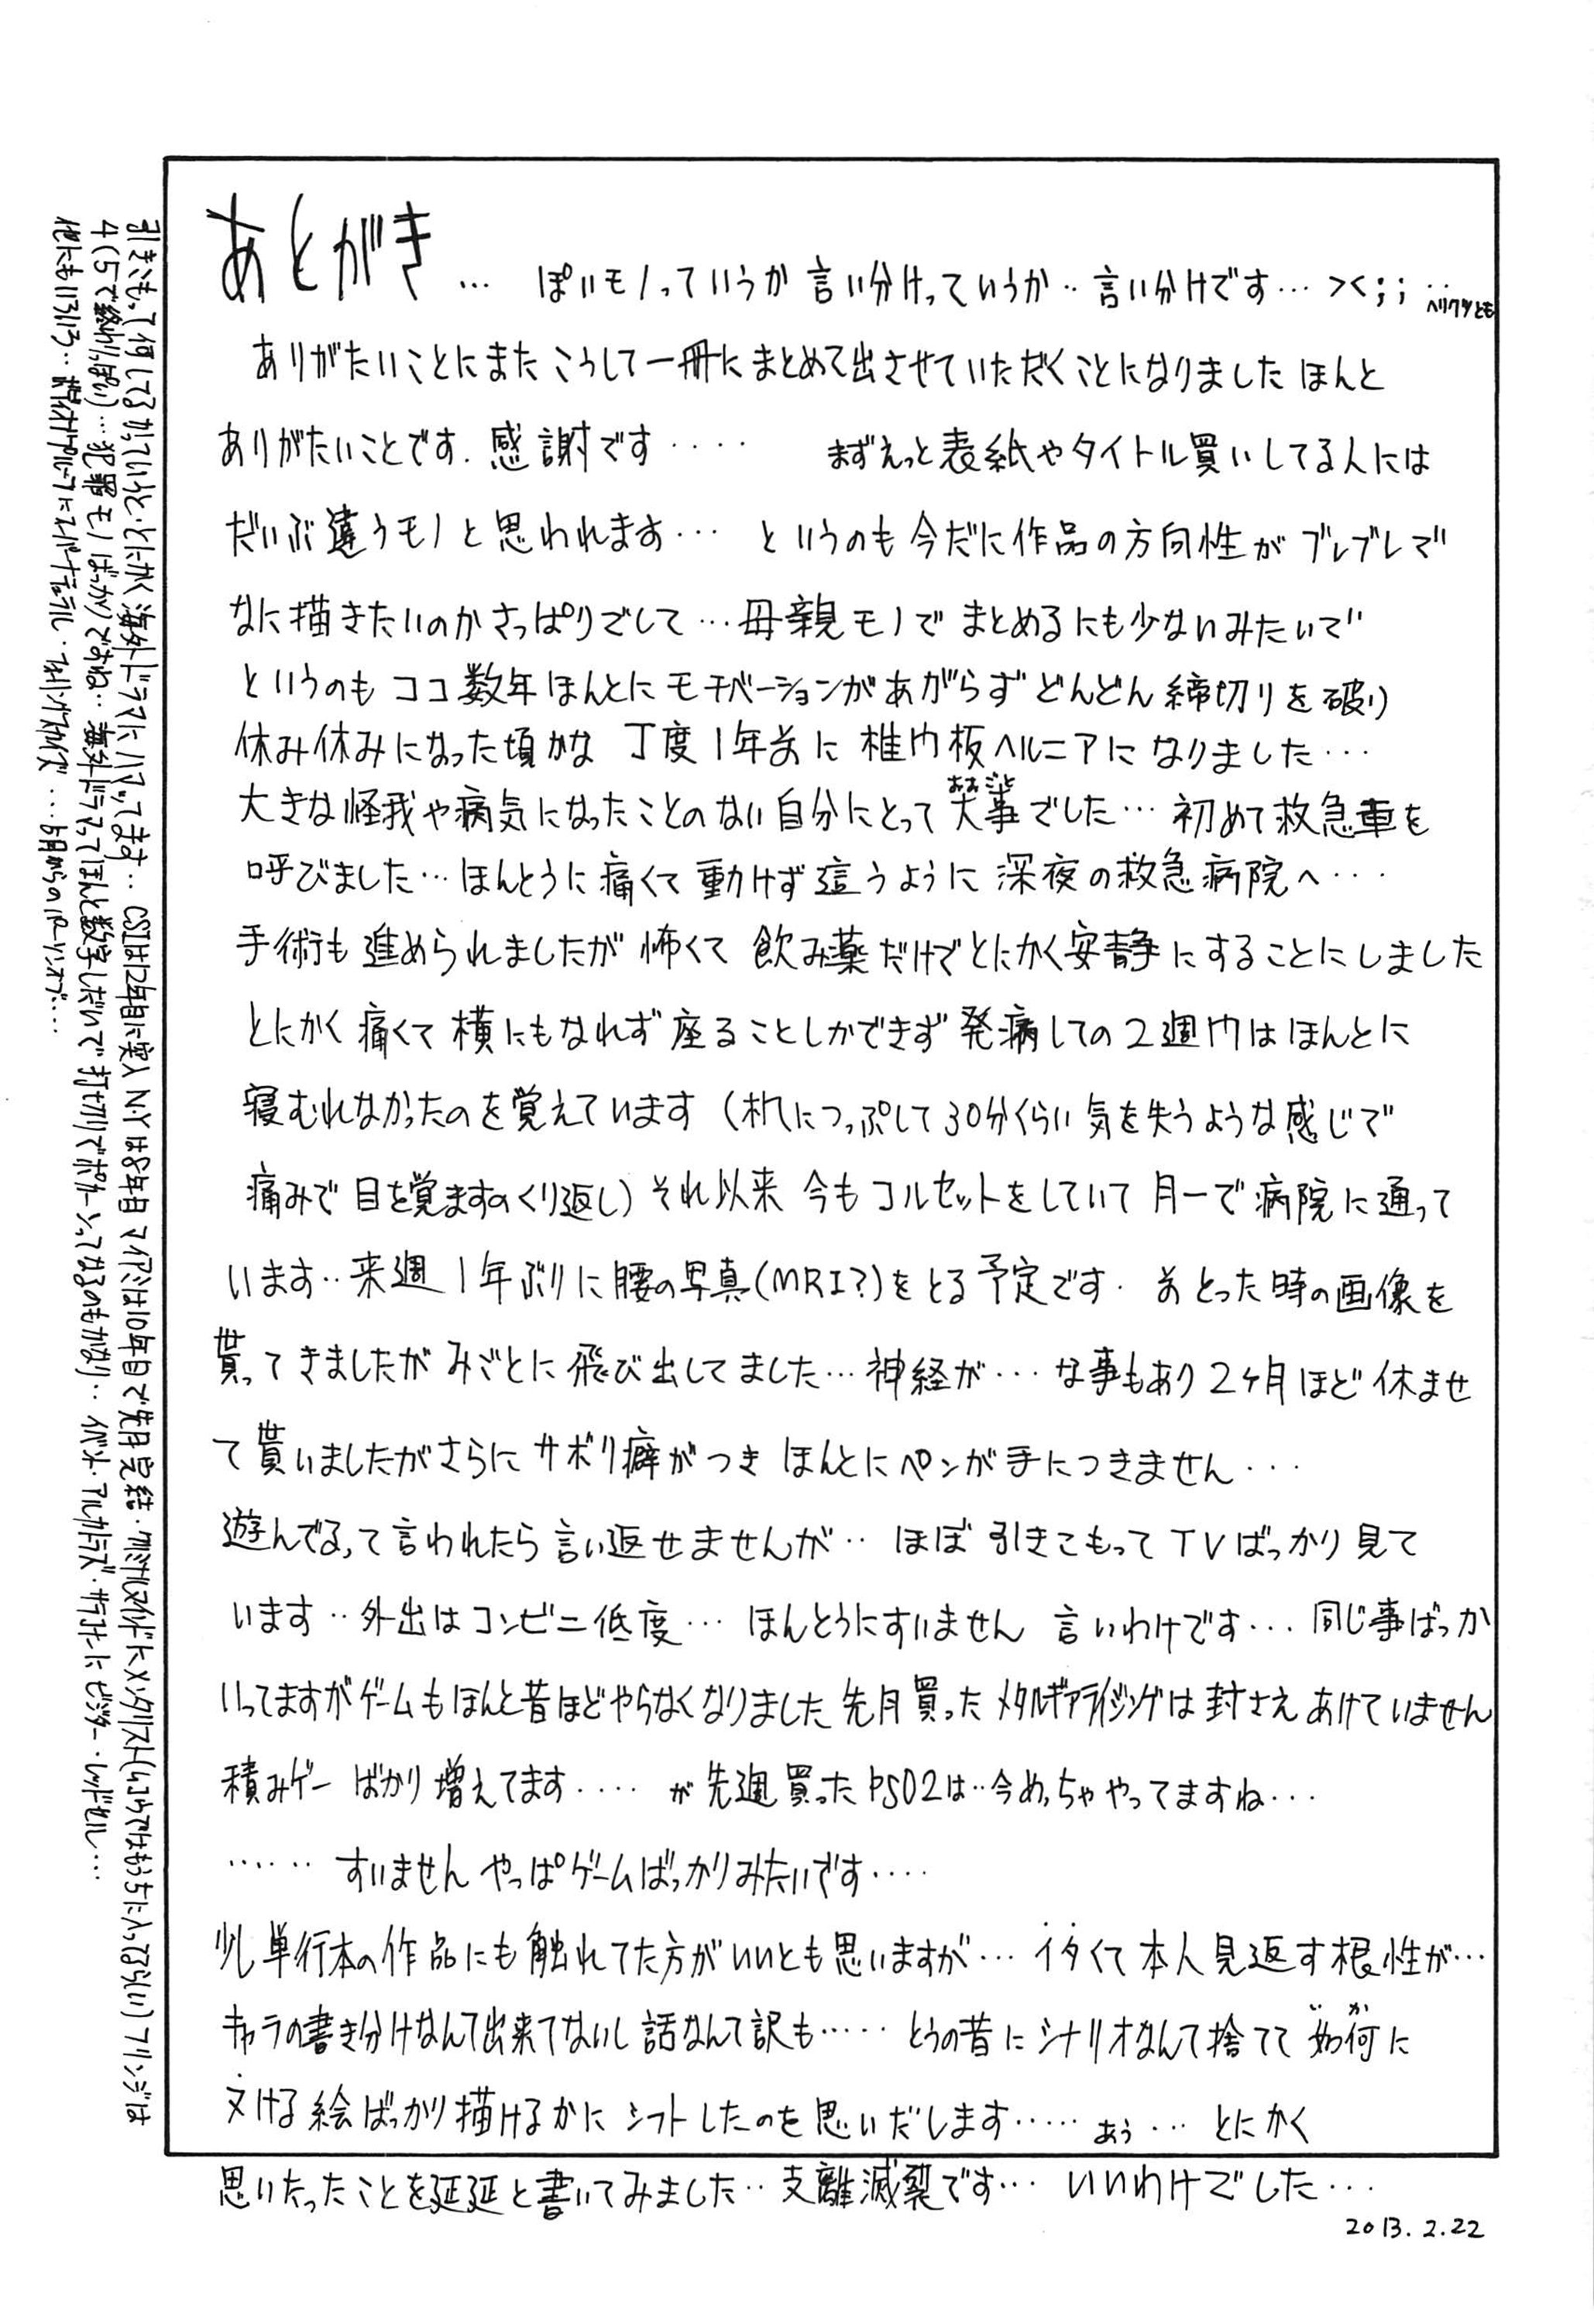 あとがき… ぽいモノっていうか言い分けっていうか‥言い分けです…><;;‥ヘリクツとも
ありがたいことにまたこうして一冊にまとめて出させていただくことになりました ほんと
ありがたいことです.感謝です‥‥ まずえっと表紙やタイトル買いしてる人には
だいぶ違うモノと思われます… というのも今だに作品の方向性がブレブレで
なに描きたいのかさっぱりでして…母親モノでまとめるにも少ないみたいで
というのもココ数年ほんとにモチベーションがあがらずどんどん締切りを破り
休み休みになった頃かな 丁度1年前に椎間板ヘルニアになりました…
大きな怪我や病気になったことのない自分にとって大事おおごとでした…初めて救急車を
呼びました…ほんとうに痛くて動けず這うように深夜の救急病院へ…
手術も進められましたが怖くて飲み薬だけでとにかく安静にすることにしました
とにかく痛くて横にもなれず座ることしかできず発病しての2週間はほんとに
寝むれなかったのを覚えています(机につっぷして30分くらい気を失うような感じで
痛みで目を覚ますのくり返し)それ以来 今もコルセットをしていて月一で病院に通って
います‥来週1年ぶりに腰の写真(MRI?)をとる予定です.前とった時の画像を
貰ってきましたがみごとに飛び出してました…神経が…な事もあり2ヶ月ほど休ませ
て貰いましたがさらにサボり癖がつきほんとにペンが手につきません…
遊んでるって言われたら言い返せませんが‥ほぼ引きこもってTVばっかり見て
います‥外出はコンビニ低度…ほんとうにすいません 言いわけです…同じ事ばっか
いってますがゲームもほんと昔ほどやらなくなりました先月買ったメタルギアライジングは封さえあけていません
積みゲーばかり増えてます‥‥が先週買ったPSO2は‥今めっちゃやってますね…
‥‥‥すいませんやっぱゲームばっかりみたいです‥‥
少し単行本の作品にも触れてた方がいいとも思いますが…イタくて本人見返す根性が…
キャラの書き分けなんて出来てないし話なんて訳も‥‥‥とうの昔にシナリオなんて捨てて如何いかに
ヌける絵ばっかり描けるかにシフトしたのを思いだします‥‥‥あぅ…とにかく
思いたったことを延延と書いてみました‥支離滅裂です…いいわけでした…
2013.2.22
引きこもって何してるかっていうと・とにかく海外ドラマにハマってます‥CSIは12年目に突入N・Yは8年目マイアミは10年目で先月完結・クリミナルマインドにメンタリスト(ここらではもうちに入ってるらしい)フリンジは
4(5で終わりっぽい)…犯罪モノばっかりですね‥海外ドラマってほんと数字しだいで打ち切りでポカーンってなるのもかなり‥イベント・アルカトラズ・サラコナーにビジター・レッドセル…
他にもいろいろ‥ボディオブプルーフにスーパーナチュラル・フォーリングスカイズ…5月からのパーソンオブ…